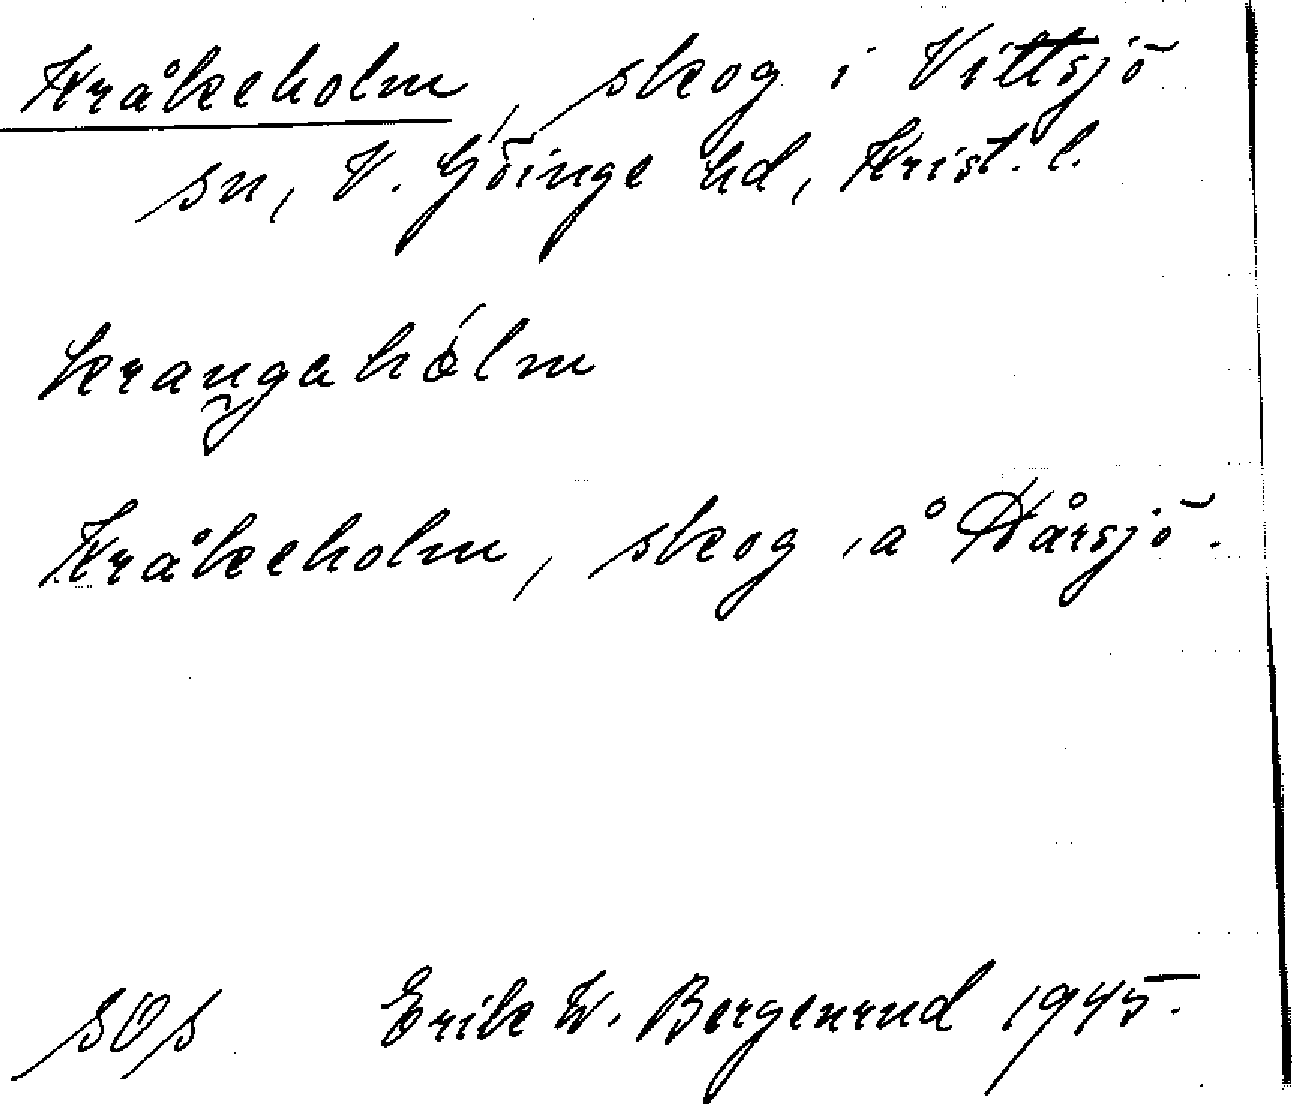 Kråkeholm, skog i Vittsjö
sn, V. Göinge hd, Krist. l.
krangahólm
Kråkeholm, skog å Hårsjö.
SOS Erik W. Bergenrud 1945.